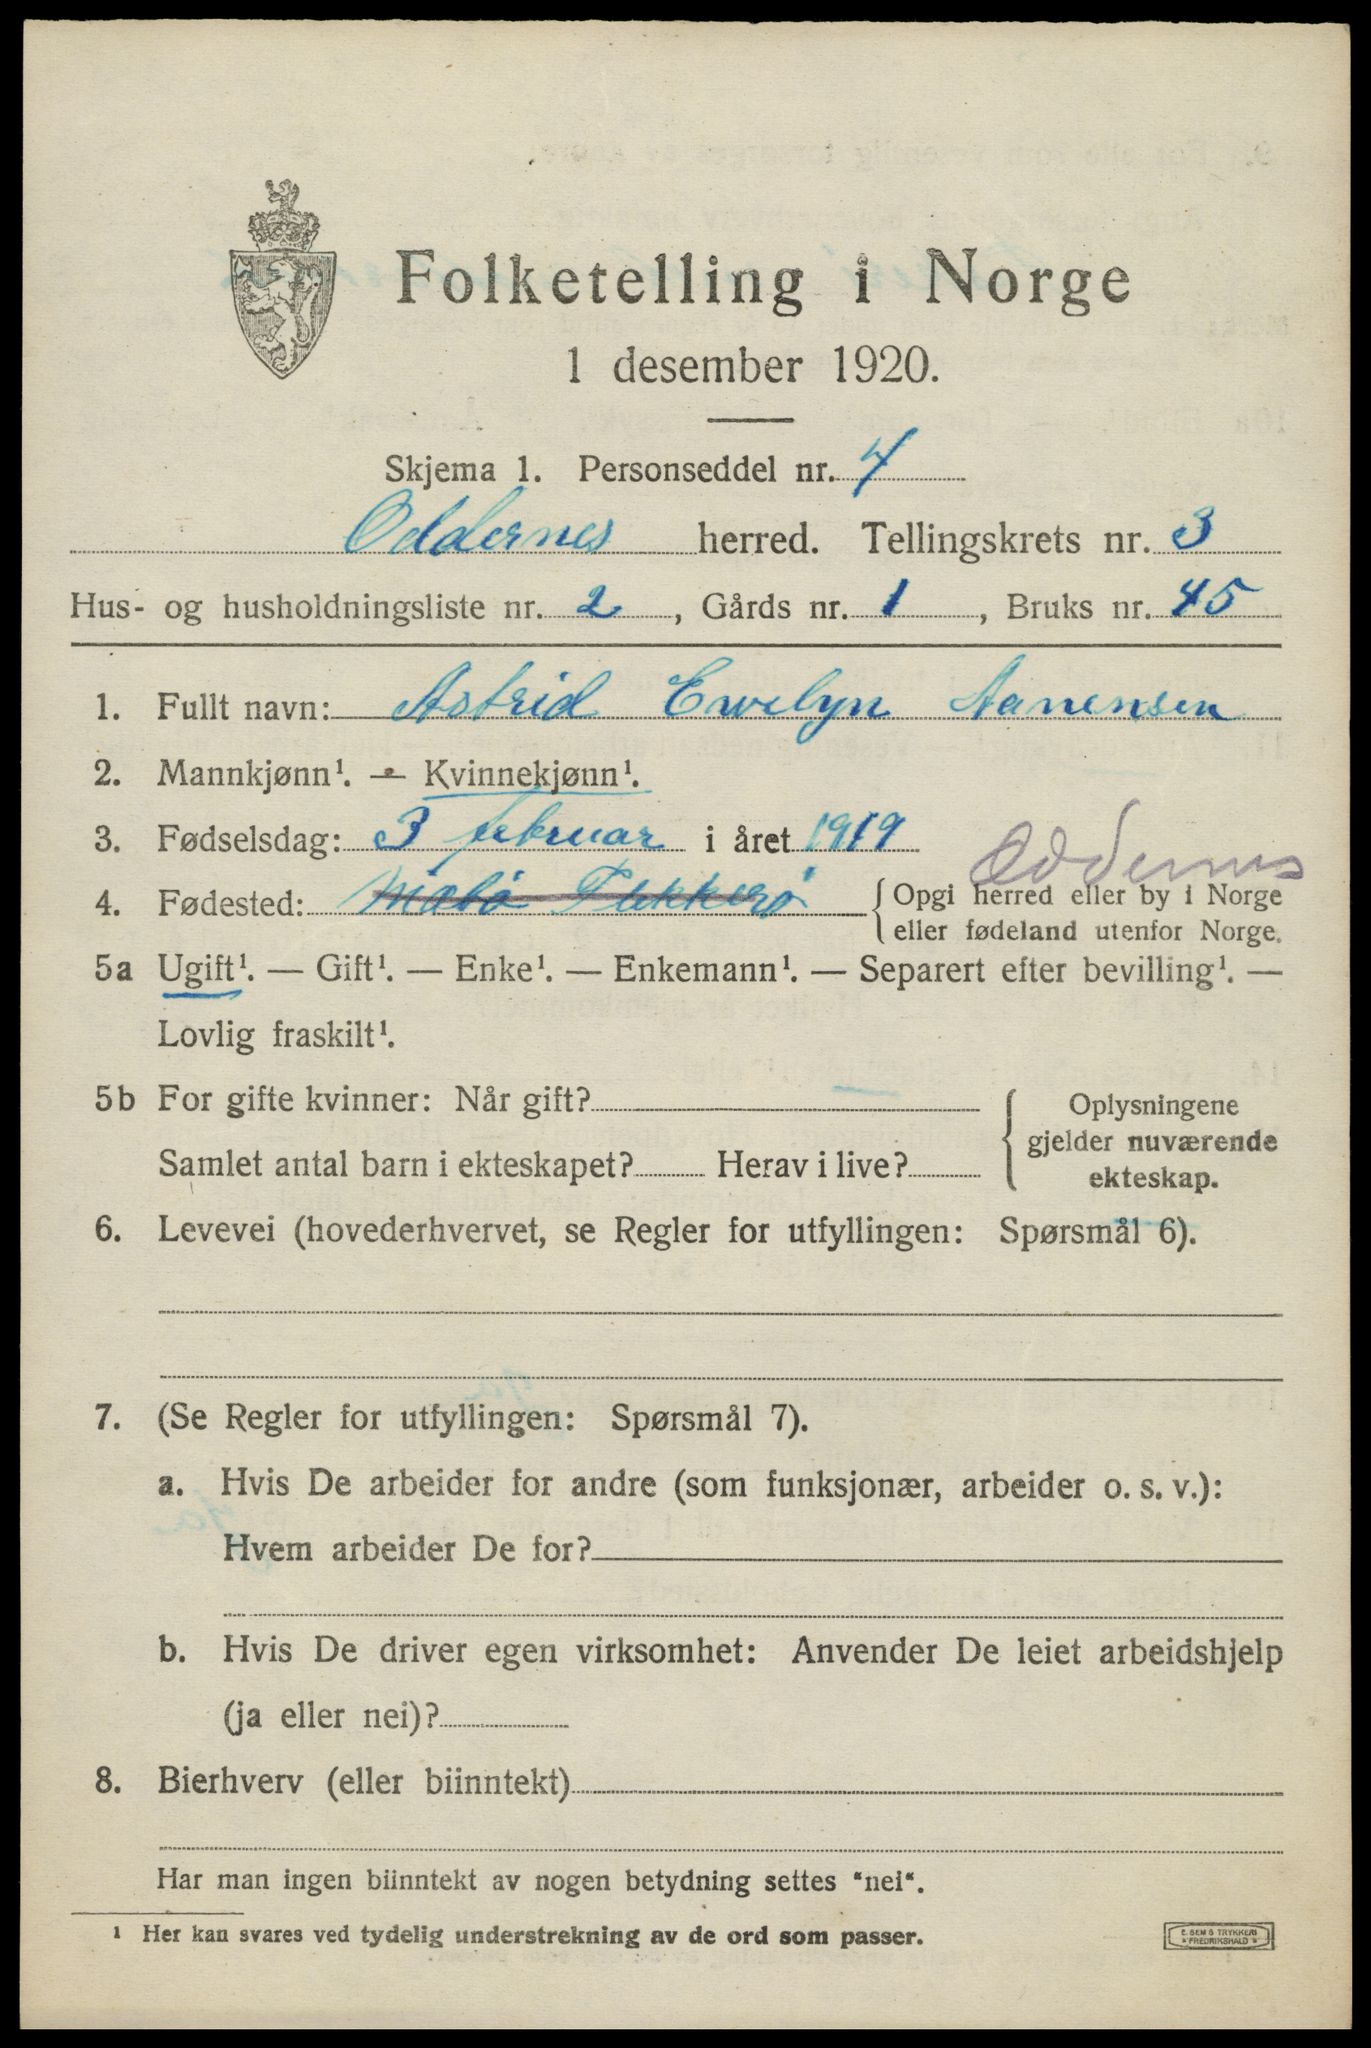 Folketelling i Norge
1 desember 1920.
Skjema 1. Personseddel nr. 4
Oddernes herred. Tellingskrets nr. 3
Hus- og husholdningsliste nr. 2, Gårds nr. 1, Bruks nr. 45
1. Fullt navn: Astrid Ewelyn Aanensen
2. Mannkjønn¹. — Kvinnekjønn¹.
3. Fødselsdag: 3 februar i året 1919
Oddernes
4. Fødested: Flekkerø { Opgi herred eller by i Norge
eller fødeland utenfor Norge.
5a Ugift¹. — Gift¹. — Enke¹. — Enkemann¹. — Separert efter bevilling¹. —
Lovlig fraskilt¹.
5b For gifte kvinner: Når gift? —
Samlet antal barn i ekteskapet? Herav i live?
{ Oplysningene
gjelder nuværende
ekteskap.
6. Levevei (hovederhvervet, se Regler for utfyllingen: Spørsmål 6).
7. (Se Regler for utfyllingen: Spørsmål 7).
a. Hvis De arbeider for andre (som funksjonær, arbeider o. s. v.):
Hvem arbeider De for?
b. Hvis De driver egen virksomhet: Anvender De leiet arbeidshjelp
(ja eller nei)?
8. Bierhverv (eller biinntekt)
Har man ingen biinntekt av nogen betydning settes "nei".
¹ Her kan svares ved tydelig understrekning av de ord som passer.
E. SEM S TRYKKERI
* FREDRIKSHALD *